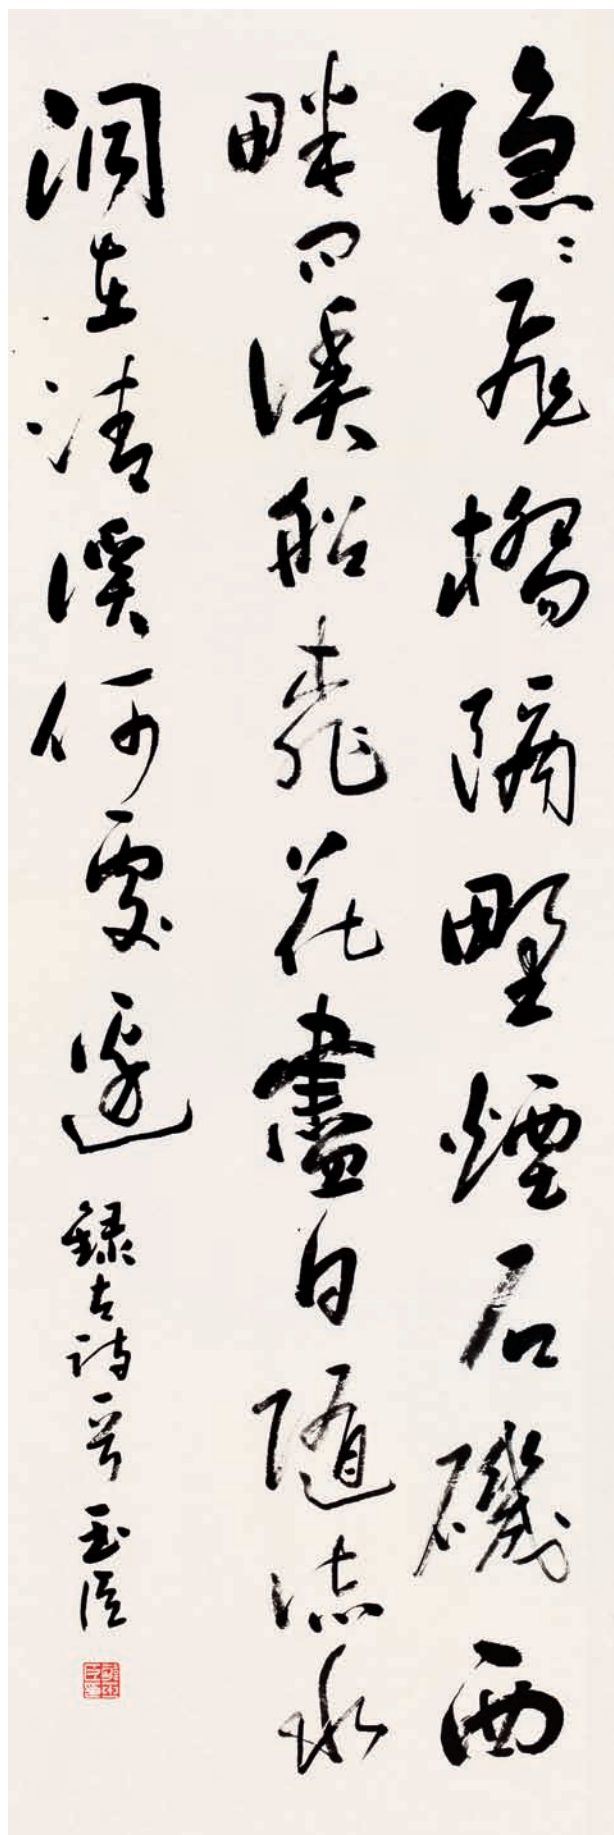 隐〻飛橋隔野煙石磯西
畔問漁船桃花盡日随流水
洞在清溪何處邊
錄古詩一首 玉臣